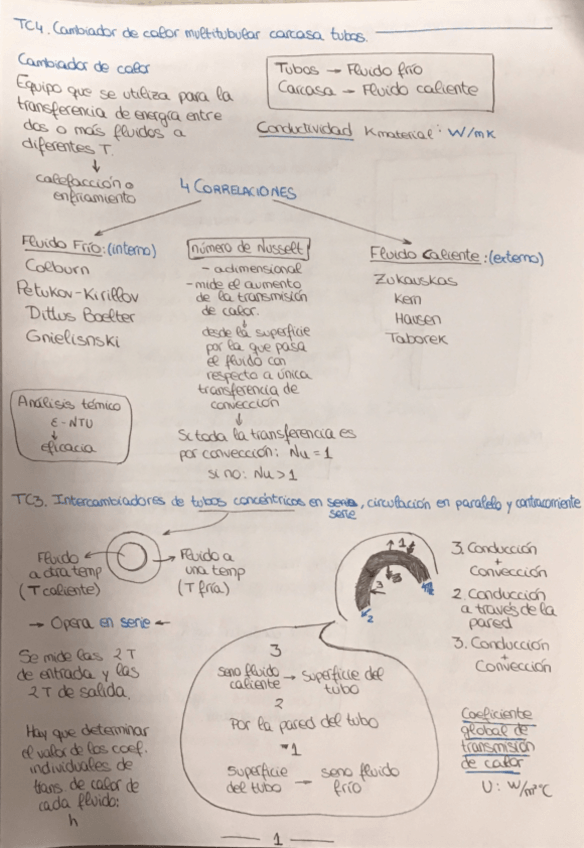 TC4. Cambiador de calor multitubular carcasa tubos.
Cambiador de calor
Equipo que se utiliza para la
transferencia de energía entre
dos o más fluidos a
diferentes T.
↓
calefacción o
enfriamiento
Tubos → Fluido frío
Carcasa → Fluido caliente
Conductividad Kmaterial: W/mK
4 CORRELACIONES
Fluido Frío: (interno)
Colburn
Petukov-Kirillov
Dittus Boelter
Gnielisnski
número de Nusselt
- adimensional
- mide el aumento
de la transmisión
de calor.
↓
desde la superficie
por la que pasa
el fluido con
respecto a única
transferencia de
convección
↓
Si toda la transferencia es
por convección: Nu = 1
si no: Nu > 1
Fluido Caliente: (externo)
Zukauskas
Kern
Hausen
Taborek
Análisis térmico
ε - NTU
↓
eficacia
TC3. Intercambiadores de tubos concéntricos en serie, circulación en paralelo y contracorriente
serie
Fluido
a otra temp
(T caliente)
Fluido a
una temp
(T fría)
→ Opera en serie ←
Se mide las 2 T
de entrada y las
2 T de salida.
Hay que determinar
el valor de los coef.
individuales de
trans. de calor de
cada fluido:
h
1
3
3
2
3
seno fluido
caliente → superficie del
tubo
2
Por la pared del tubo
1
superficie
del tubo → seno fluido
frío
3. Conducción
+
Convección
2. Conducción
a través de la
pared
3. Conducción
+
Convección
Coeficiente
global de
transmisión
de calor
U: W/m²°C
1